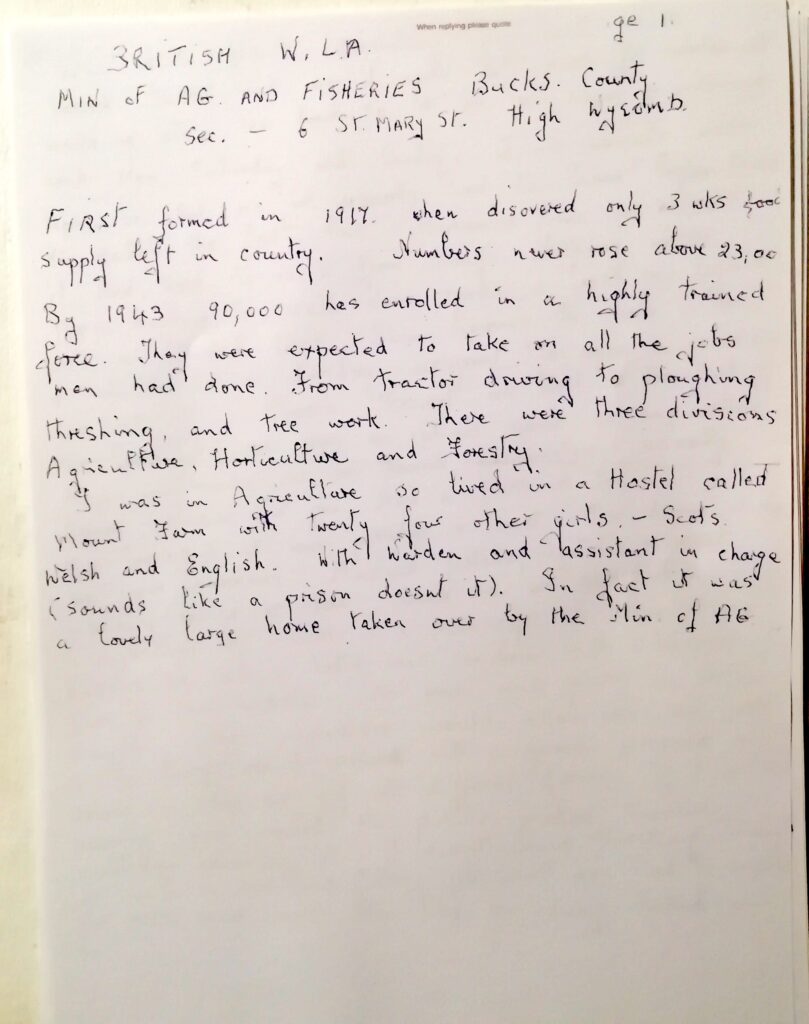 When replying please quote
ge 1.
BRITISH W.L.A.
MIN OF AG. AND FISHERIES Bucks. County
Sec. – 6 ST. MARY ST. High Wycomb.
FIRST formed in 1917. when disovered only 3 wks food
supply left in country. Numbers never rose above 23,00
By 1943 90,000 has enrolled in a highly trained
force. They were expected to take on all the jobs
men had done. From tractor driving to ploughing
threshing, and tree work. There were three divisions
Agriculture, Horticulture and Forestry.
I was in Agriculture so lived in a Hostel called
Mount Farm with twenty four other girls. – Scots
Welsh and English. With Warden and assistant in charge
(sounds like a prison doesnt it). In fact it was
a lovely large home taken over by the Min of AG